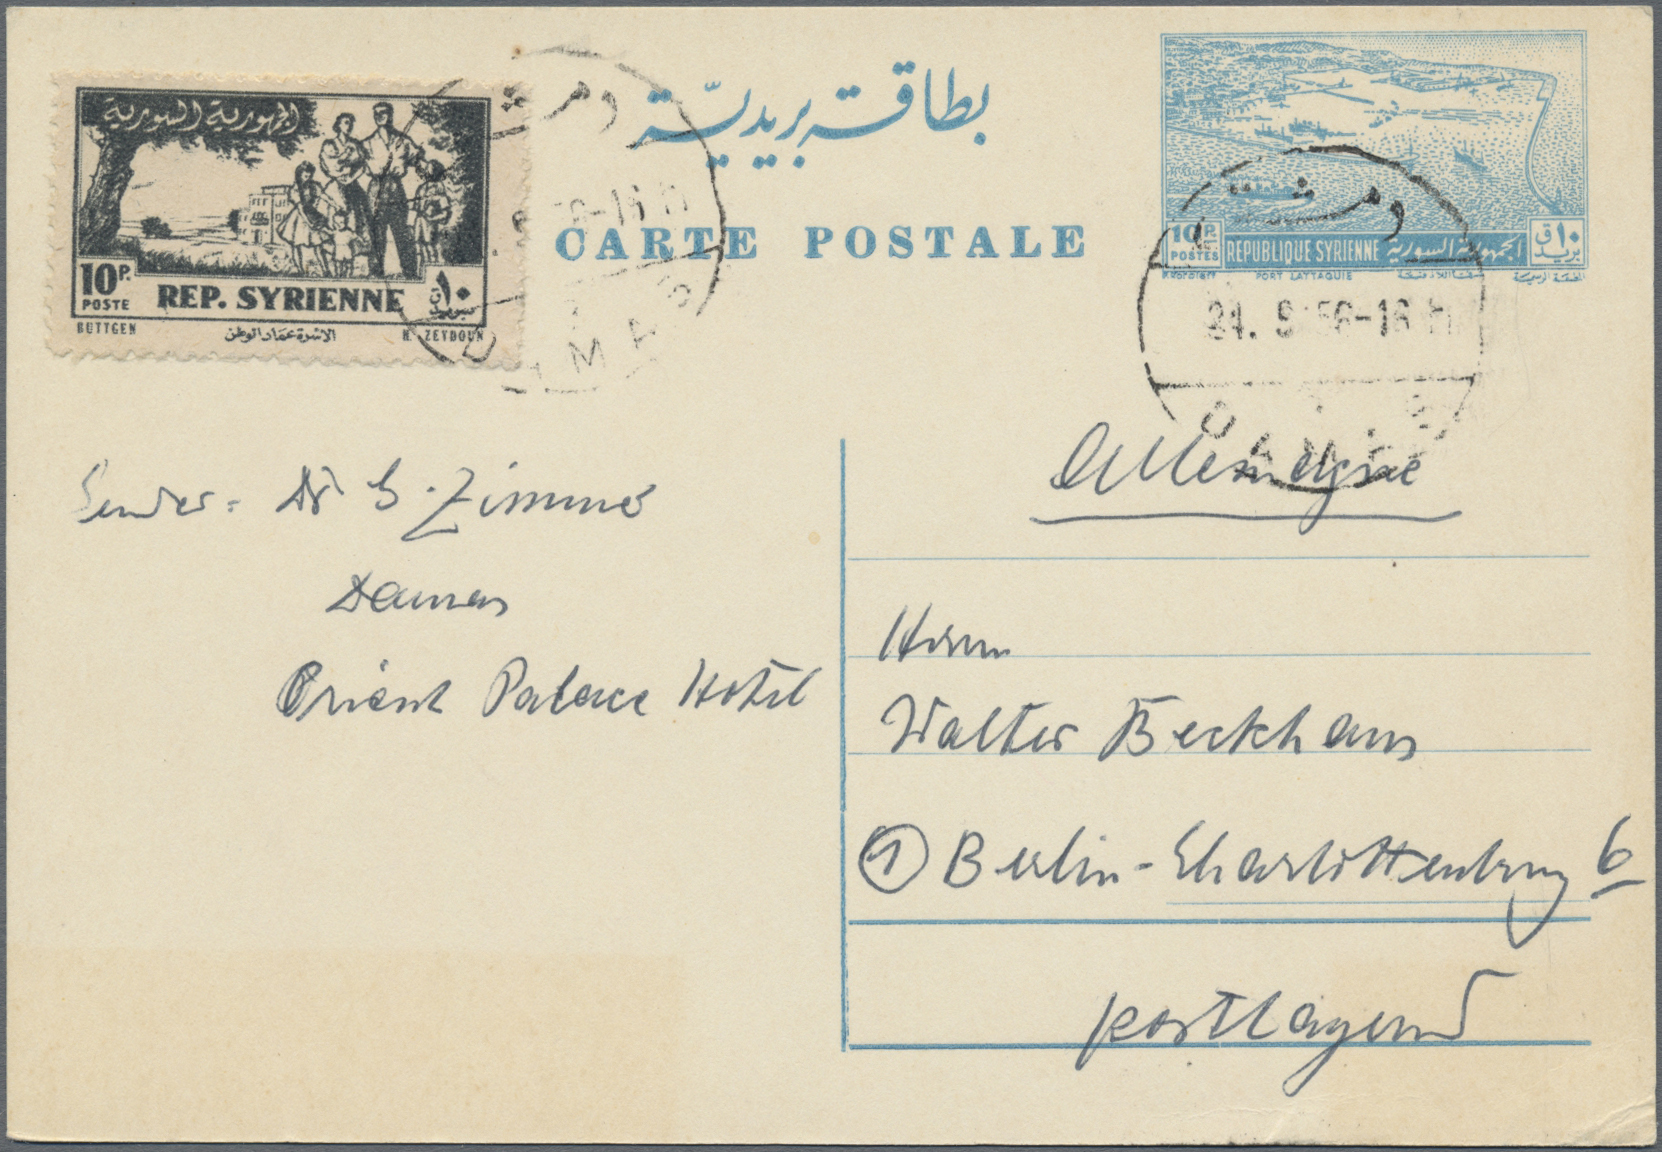 الجمهورية السورية
10 P.
POSTE
REP. SYRIENNE
١٠ ق
بريد
BÜTTGEN
الأسرة عماد الوطن
H. ZEYDOUN
دمشق
بطاقة بريدية
CARTE POSTALE
10 P.
POSTES
REPUBLIQUE SYRIENNE الجمهورية السورية
١٠ ق
بريد
PORT LATTAQUIE
دمشق
24. 9 56-16 H
DAMAS
Allemagne
Sender: Dr G. Zimmer
Damas
Orient Palace Hotel
Herrn
Walter Beckhaus
1 Berlin-Charlottenburg 6
postlagernd